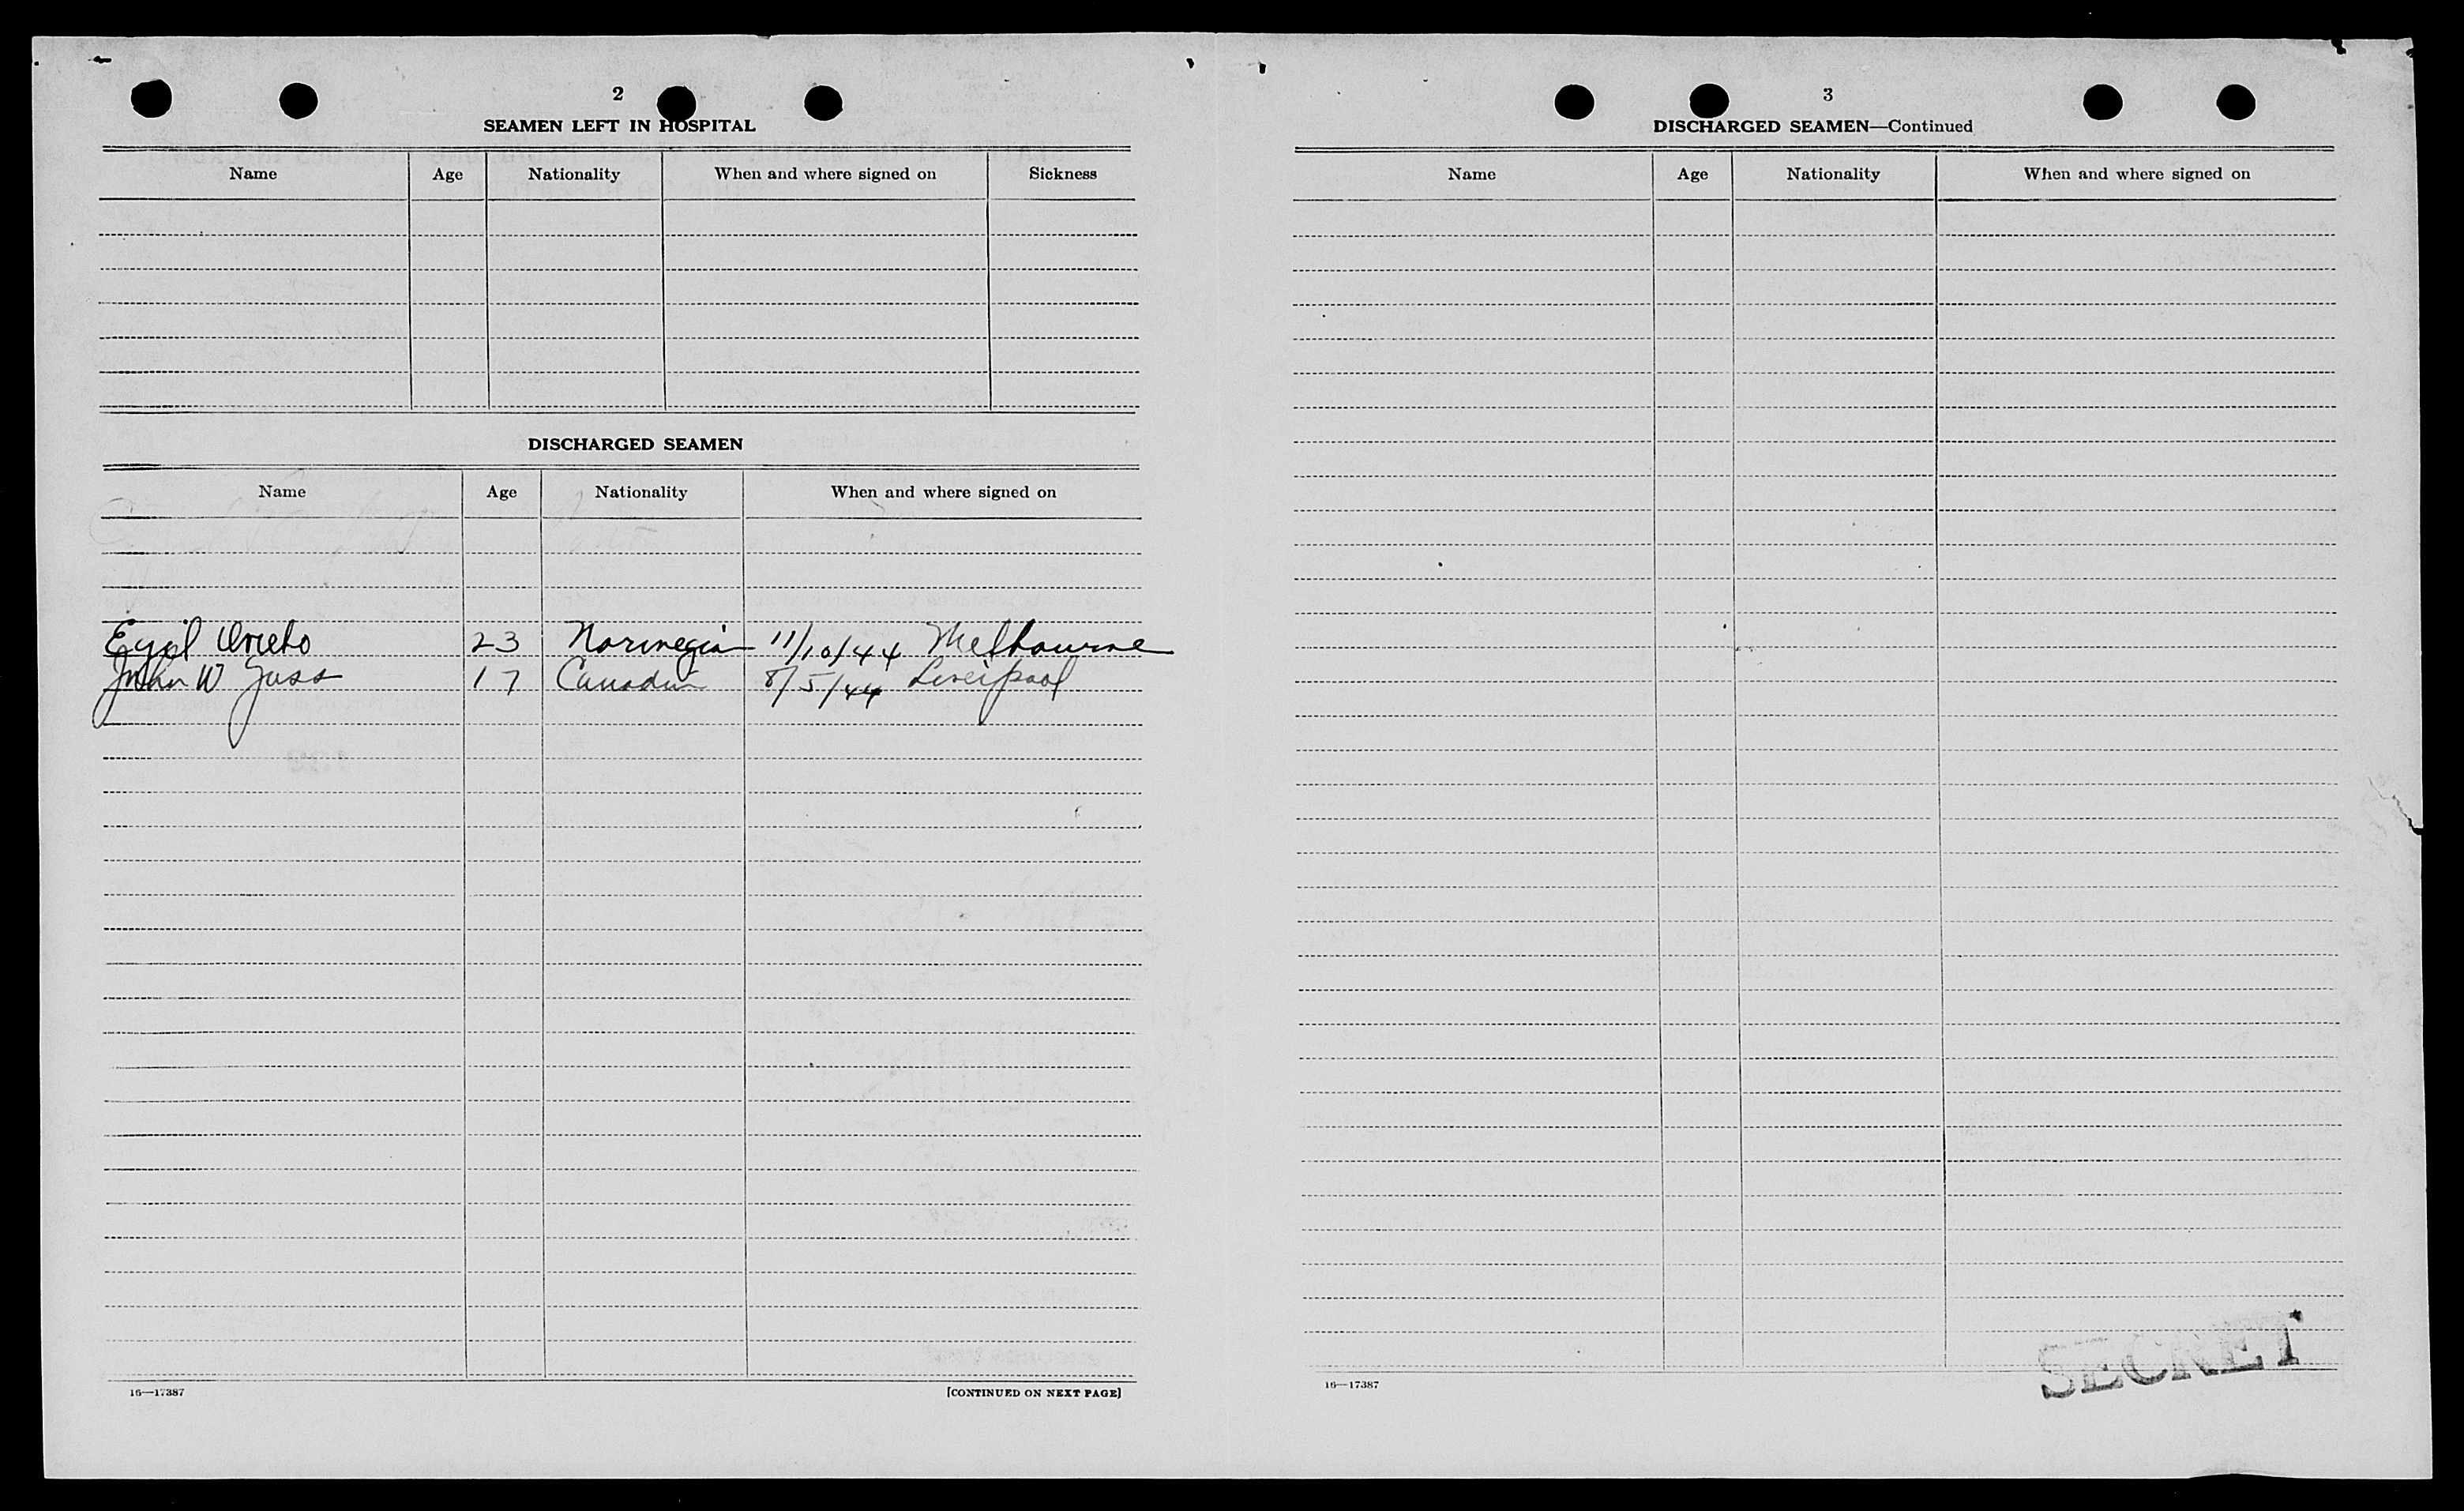 2
SEAMEN LEFT IN HOSPITAL
Name Age Nationality When and where signed on Sickness
DISCHARGED SEAMEN
Name Age Nationality When and where signed on
Egil 23 Norwegian 11/10/44 Melbourne
John W 17 Canadian 8/5/44 Liverpool
16—17387 [CONTINUED ON NEXT PAGE]
3
DISCHARGED SEAMEN—Continued
Name Age Nationality When and where signed on
SECRET
16—17387